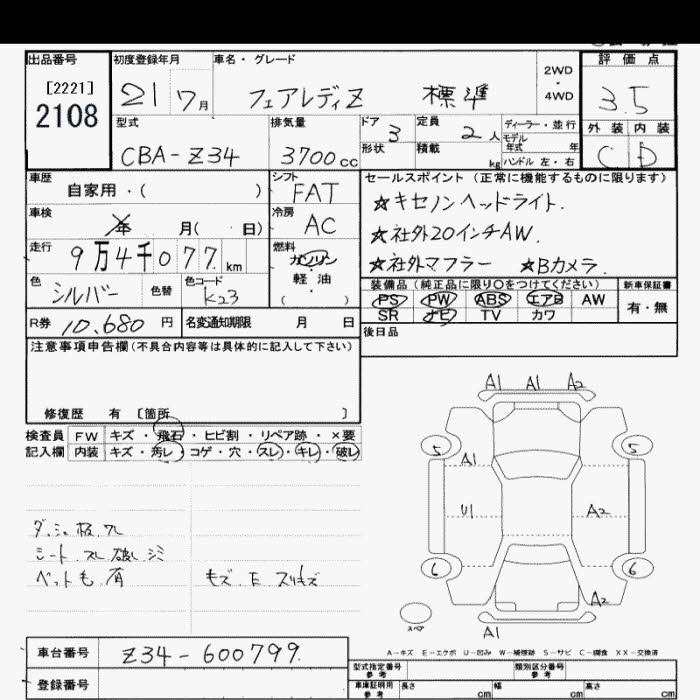 出品番号
[2221]
2108
初度登録年月
21 7月
車名・グレード
フェアレディZ 標準
2WD
・
4WD
評価点
3.5
外装 内装
C D
型式
CBA-Z34
排気量
3700cc
ドア 3
形状
定員 2人
積載 kg
ディーラー・並行
モデル年式 年
ハンドル 左・右
車歴
自家用・( )
シフト
FAT
車検
年 月( 日)
冷房
AC
走行
9万4千077km
燃料
ガソリン
・
軽油
( )
色
シルバー
色替
色コード
K23
R券 10,680円
名変通知期限 月 日
セールスポイント (正常に機能するものに限ります)
☆キセノンヘッドライト.
☆社外20インチAW.
☆社外マフラー ☆Bカメラ.
装備品(純正品に限り〇をつけてください)
PS PW ABS エアB AW
SR ナビ TV カワ
新車保証書
有・無
後日品
注意事項申告欄(不具合内容等は具体的に記入して下さい)
修復歴 有 [箇所 ]
検査員 FW キズ・飛石・ヒビ割・リペア跡・×要
記入欄 内装 キズ・汚レ・コゲ・穴・スレ・キレ・破レ
シート スレ 破レ シミ
A1 A1 A2
5 5
A1
U1 A2
6 6
A2
スペア
A1
A-キズ E-エクボ U-凹み W-補修跡 S-サビ C-腐食 XX-交換済
車台番号 Z34-600799
登録番号
型式指定番号
参考
類別区分番号
参考
車庫証明用
参考
長さ cm 幅 cm 高さ cm